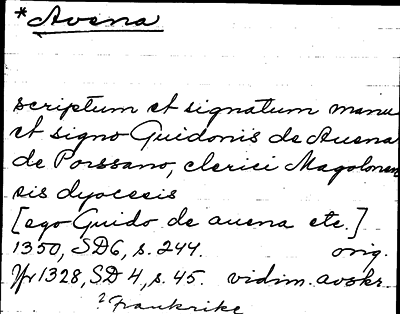 *Avena
scriptum et signatum manu
et signo Guidonis de Auena
de Porssano, clerici Magolonen
sis dyocesis
[ego Guido de auena etc.]
1350, SD6, s. 244. orig.
Yfr 1328, SD 4, s. 45. vidim. avskr.
? Frankrike